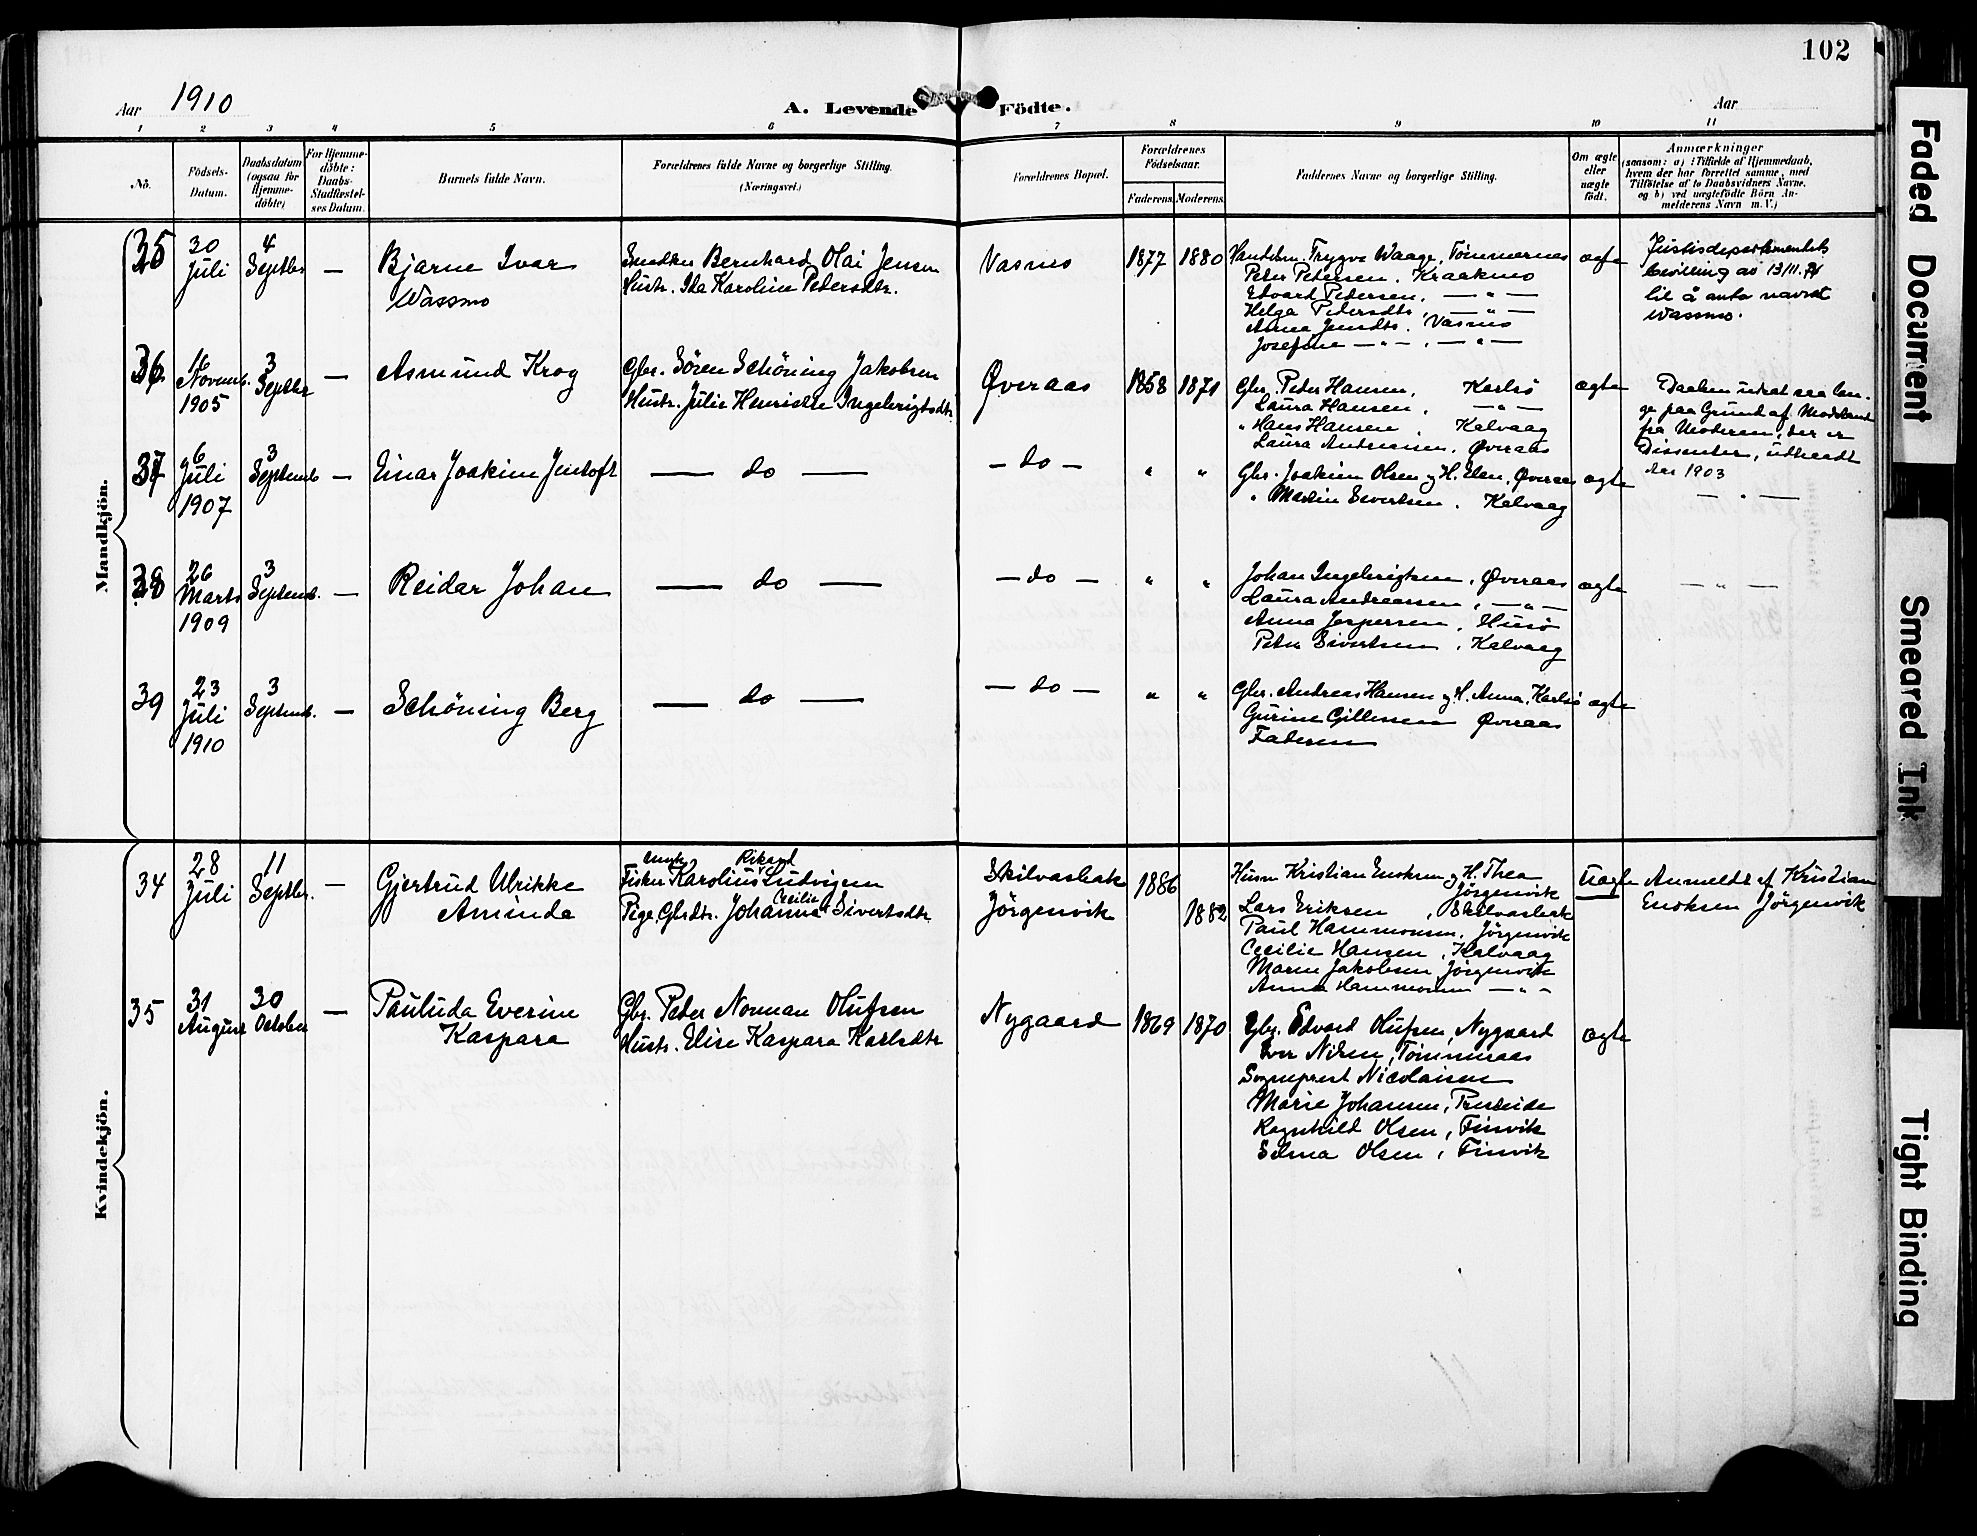 102
Aar 1910
A. Levende Födte.
Aar
1 2 3 4 5 6 7 8 9 10 11
No.
Födsels-
Datum.
Daabsdatum
(ogsaa for
Hjemme-
döbte)
For Hjemme-
döbte:
Daabs-
Stadfæstel-
ses Datum.
Barnets fulde Navn.
Forældrenes fulde Navne og borgerlige Stilling.
(Næringsvei.)
Forældrenes Bopæl.
Forældrenes
Födselsaar.
Faderens Moderens
Faddernes Navne og borgerlige Stilling.
Om ægte
eller
uægte
födt.
Anmærkninger
(saasom: a) i Tilfælde af Hjemmedaab,
hvem der har forrettet samme, med
Tilföielse af to Daabsvidners Navne,
og b) ved uægtefödte Börn An-
melderens Navn m. V.)
Mandkjön.
35
30
Juli
4
Septbr
—
Bjarne Ivar
Wassmo
Snedker Bernhard Olai Jensen
Hustr. Ida Karoline Pedersdtr.
Vasmo
1877 1880
Handelsm. Trygve Waage, Tømmernes
Peter Petersen, Kraakmo
Edvard Pedersen, — " —
Helga Pedersdtr, — " —
Anna Jensdtr. Vasmo
Josefine — " — , — " —
ægte
Justisdepartementets
bevilling av 13/11.
til å anta navnet
Wassmo.
36
16
Novemb.
1905
3
Septbr
—
Asmund Krog
Gbr. Søren Schöning Jakobsen
Hustr. Julie Henriette Ingebrigtsdtr
Øveraas
1858 1871
Gbr. Peter Hansen, Karlsö
Laura Hansen, — " —
" Hans Hansen, Kalvaag
Laura Andreasen, Øveraas
ægte
Daaben udsat saa læn-
ge paa Grund af Modstand
fra Moderen, der er
Dissenter, udtraadt
Aar 1903
37
6
Juli
1907
3
Septemb
—
Einar Joakim Jentoft
— do —
— do —
" "
Gbr. Joakim Olsen og H. Elen, Øveraas
" Martin Sivertsen, Kalvaag
ægte
— " —
38
26
Marts
1909
3
Septemb.
—
Reidar Johan
— do —
— do —
" "
Johan Ingebrigtsen, Øveraas
Laura Andreassen, — " —
Anna Jespersen, Husö
Peter Sivertsen, Kalvaag
ægte
— " —
39
23
Juli
1910
3
Septemb.
—
Schöning Berg
— do —
— do —
" "
Gbr. Andreas Hansen og H. Anna, Karlsö
Gurine Gillesen Øveraas
Faderen
ægte
Kvindekjön.
34
28
Juli
11
Septbr.
—
Gjertrud Ulrikke
Aminda
Ungk. Rikard
Fisker Karolius Ludvigsen
Cecilie
Pige Gbrdtr. Johanna Sivertsdtr
Skilvasbak
Jörgenvik
1886
1882
Husm Kristian Enoksen og H. Thea
Jörgenvik
Lars Eriksen, Skilvasbak
Paul Hammonsen, Jörgenvik
Cecilie Hansen, Kalvaag
Maren Jakobsen Jörgenvik
Anna Hammonsen — " —
Uægte
Anmeldt af Kristian
Enoksen Jörgenvik
35
31
August
30
October
—
Pauluda Everine
Kaspara
Gbr. Peder Norman Olufsen
Hustr. Elise Kaspara Karlsdtr
Nygaard
1869 1870
Gbr. Edvard Olufsen, Nygaard
Iver Nilsen, Tömmeraas
Sogneprest Nicolaisen
Marie Johansen, Presteide
Ragnhild Olsen, Finvik
Selma Olsen, Finvik
ægte
Faded Document
Smeared Ink
Tight Binding